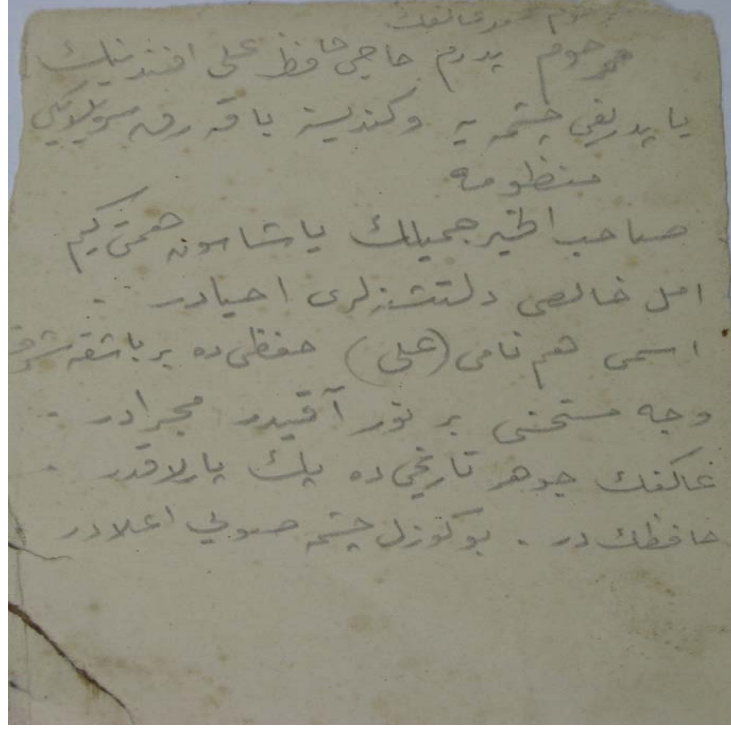 مرحوم عاكفك
مرحوم پدرم حاجى حافظ على افندينك
ياپديرديغى چشمه يه وكنديسنه باقه رق سويلديكى
منظومه
صاحب الخير جميلك ياشاسون همتى كيم
امل خالصى دلتشنه لرى احيادر .
اسمى هم نامى (على) حفظى ده بر باشقه شرف
وجه مستحسنى بر نور آقيدر مجرادر .
عاكفك جوهر تاريخى ده پك پارلاقدر .
حافظكدر . بو كوزل چشمه صوئى اعلادر